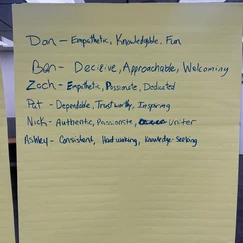 Dan - Empathetic, Knowledgable, Fun
Ben - Decisive, Approachable, Welcoming
Zach - Empathetic, Passionate, Dedicated
Pat - Dependable, Trustworthy, Inspiring
Nick - Authentic, Passionate, Uniter
Ashley - Consistent, Hardworking, Knowledge-Seeking